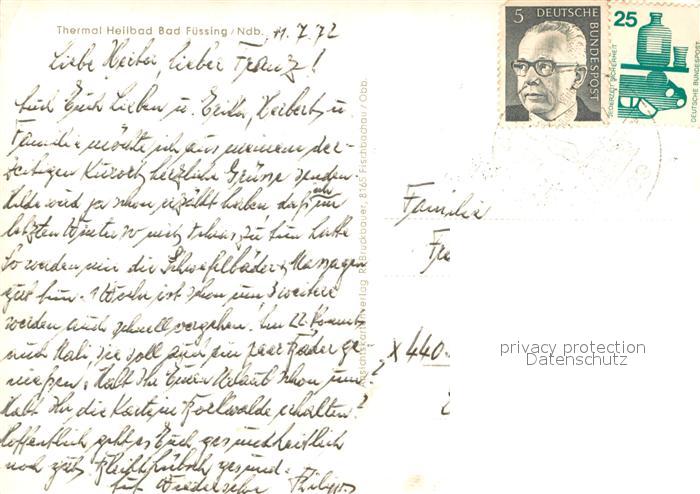 Thermal Heilbad Bad Füssing / Ndb. 11.7.72
lieber Franz!
Euch Lieben u. Erika, Herbert u.
Familie möchte ich aus meinem der-
zeitigen Kurort herzliche Grüsse senden.
Hilde wird ja schon erzählt haben daß ich im
letzten Winter so mit zu tun hatte
So werden mir die Schwefelbäder u. Massagen
gut tun. 1 Woche ist schon um, 3 weitere
werden auch schnell vergehen. Am 22. kommt
auch sie soll auch ein paar Bäder ge-
nießen. Habt Ihr Euren Urlaub schon um?
Habt Ihr die Karte erhalten?
Hoffentlich geht es Euch gesundheitlich
noch gut. Bleibt hübsch gesund.
Auf Wiedersehn Philipp
Brückbauer, 8165 Fischbachau / Obb.
5 DEUTSCHE BUNDESPOST
25 JEDERZEIT SICHERHEIT DEUTSCHE BUNDESPOST
Familie
Fra
X 440
privacy protection
Datenschutz